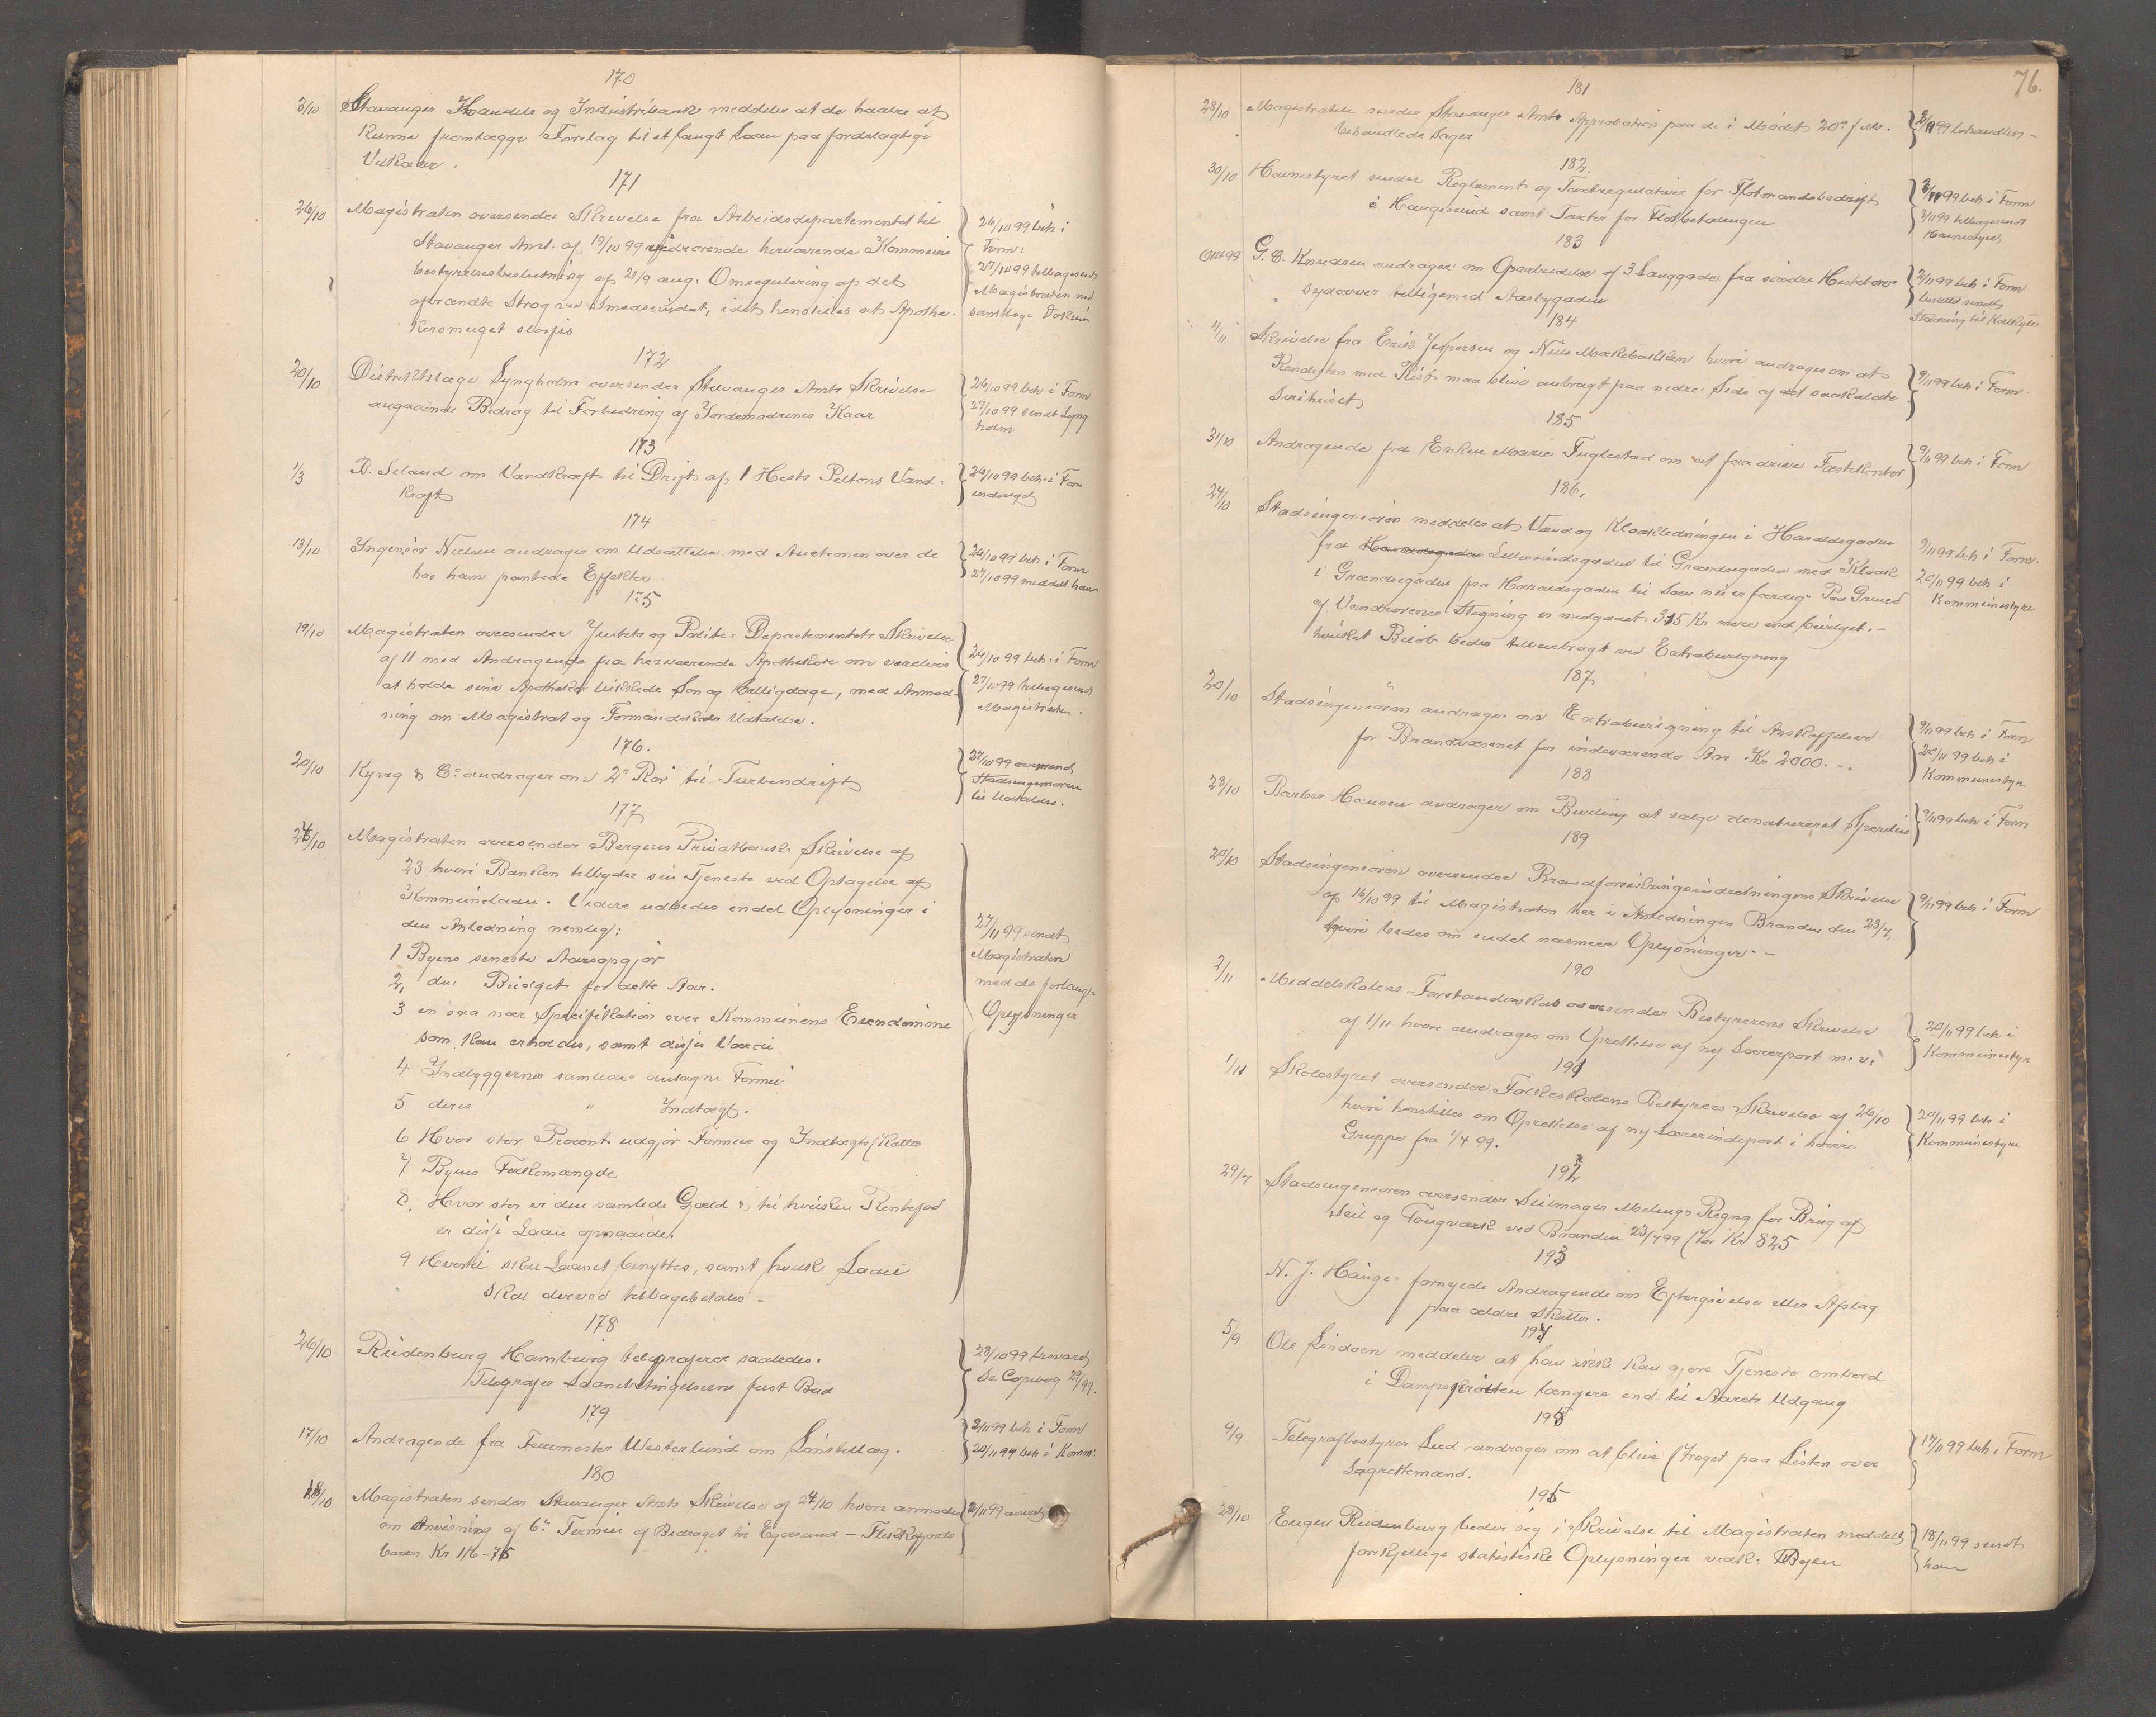 170
3/10 Stavanger Handels og Industribank meddeler at de haaber at
kunne fremlægge Forslag til et langt Laan paa fordelagtige
Vilkaar.
171
26/10 Magistraten oversender Skrivelse fra Arbeidsdepartementet til
Stavanger Amt. af 19/10 99 vedrørende herværende Kommune
bestyrelsesbeslutning af 21/9 ang: Omregulering af det
afbrændte Strøg ved Smedesundet, idet henstilles at Apothe-
kersmuget sløifes
26/10 99 beh i
Form:
27/10 99 tilbagesendt
Magistraten med
samtlige Dokum
172
20/10 Distriktslæge Lyngholm oversender Stavanger Amts Skrivelse
angaaende Bidrag til Forbedring af Jordemødrenes Kaar
26/10 99 beh i Form
27/10 99 sendt Lyng
holm
173
1/3 B. Seland om Vandkraft til Drift af 1 Hests Peltons Vand-
kraft
26/10 99 beh. i For
174
13/10 Ingeniør Nielsen andrager om Udsættelse med Auctionen over de
hos ham pantede Effekter.
26/10 99 beh i Form
27/10 99 meddelt ham
175
19/10 Magistraten oversender Justits og Politi-Departementets Skrivelse
af 11 med Andragende fra herværende Apothekere om vexelvis
at holde sine Apotheker lukkede Søn og Helligdage, med Anmod-
ning om Magistrat og Formandskabs Udtalelse.
26/10 99 beh. i Form
27/10 99 tilbagesendt
Magistraten.
176.
20/10 Kyvig & Co andrager om 2" Rør til Turbindrift
27/10 99 oversendt
Stadsingeniøren
til Udtalelse.
177
24/10 Magistraten oversender Bergens Privatbanks Skrivelse af
23 hvori Banken tilbyder sin Tjeneste ved Optagelse af
Kommunelaan. Videre udbedes endel Oplysninger i
den Anledning nemlig:
1 Byens seneste Aarsopgjør
2, do: Budget for dette Aar.
3 en saa nær Specifikation over Kommunens Eiendomme
som kan erholdes, samt disses Værdi
4 Indbyggernes samlede antagne Formue
5 deres " Indtægt.
6 Hvor stor Procent udgjør Formue og Indtægts Skatten
7 Byens Folkemængde
8. Hvor stor er den samlede Gjæld & til hvilken Rentefod
er disse Laan opnaaede.
9 Hvortil skal Laanet benyttes, samt hvilke Laan
skal derved tilbagebetales -
27/11 99 sendt
Magistraten
med de forlangte
Oplysninger
178
26/10 Rüdenburg Hamburg telegraferer saaledes.
Telegrafer Laanebetingelserne fast Bud
28/10 99 besvaret
Se Copibog 29/99.
179
17/10 Andragende fra Fuermester Westerlund om Lønstillæg.
2/11 99 beh i Form
20/11 99 beh i Komm:
180
28/10 Magistraten sender Stavanger Amts Skrivelse af 24/10 hvori anmodes
om Anvisning af 6te Termin af Bidraget for Egersund - Flekkefjords
banen Kr 116-75
2/11 99
76.
181
28/10 Magistraten sender Stavanger Amts Approbation paa de i Mødet 20de f.M.
behandlede Sager
2/11 99 behandlet-
182.
30/10 Havnestyret sender Reglement og Taxtregulativ for Flotmandsbedrift
i Haugesund samt Taxter for Flotbetalingen
2/11 99 beh i Form
2/11 99 tilbagesendt
Havnestyret
183
G. E. Knudsen andrager om Oparbeidelse af 3 Langgade fra søndre
sydover tilligemed Aasbygaden
2/11 99 beh i Form
184
4/11 Skrivelse fra Erik Jespersen og Niels Mækebakken hvori andrages om at
Rendesten med Rist maa blive anbragt paa nedre Side af det saakaldte
9/11 99 beh i Form.
185
31/10 Andragende fra Enken Marie Fuglestad om at faa drive Fæstekontor
9/11 99 beh i Form
186.
24/10 Stadsingeniøren meddeler at Vand og Kloakledningen i Haraldsgaden
fra Haraldsgaden Sillesundsgaden til Grændsegaden med Kloak
i Grændsegaden fra Haraldsgaden til Søen nu er færdig. Paa Grund
af Vandrørenes Stigning er medgaaet 315 Kr. mere end budget.-
hvilket Beløb bedes tilveiebragt ved Extrabevilgning
9/11 99 beh i Form.
20/11 99 beh i
Kommunestyre
187
20/10 Stadsingeniøren andrager om Extrabevilgning til Anskaffelser
for Brandvæsenet for indeværende Aar Kr 2000.-.
9/11 99 beh i Form
20/11 99 beh i
Kommunestyre
188
28/10 Barber Hansen andrager om Bevilling at sælge denatureret Spiritus
9/11 99 beh i Form
189
20/10 Stadsingeniøren oversender Brandforsikringsindretningens Skrivelse
af 16/10 99 til Magistraten her i Anledningen Branden den 23/7,
hvori bedes om endel nærmere Oplysninger.-
9/11 99 beh i Form
190
2/11 Middelskolens Forstanderskab oversender Bestyrerens Skrivelse
af 1/11 hvori andrages om Oprettelse af ny Lærerpost m.v.
20/11 99 beh i
Kommunestyre
191
1/11 Skolestyret oversender Folkeskolens Bestyrers Skrivelse af 26/10
hvori henstilles om Oprettelse af ny Lærerindepost i høiere
Gruppe fra 1/4 99.
20/11 99 beh i
Kommunestyre
192
29/7 Stadsingeniøren oversender Seilmager Mølings Regng for Brug af
Seil og Tougværk ved Branden 23/7 99 stor Kr 825
193
N. J. Hauges fornyede Andragende om Eftergivelse eller Afslag
paa ældre Skatter.
194
5/9 Ole Lindøen meddeler at han ikke kan gjøre Tjeneste ombord
i Dampsprøiten længere end til Aarets Udgang
195
9/9 Telegrafbestyrer Lied andrager om at blive sløiget paa Listen over
Lagrettemænd.
17/11 99 beh i Form
195
28/10 Eugen Rüdenburg beder sig i Skrivelse til Magistraten meddelt
forskjellige statistiske Oplysninger vedk: Byen
18/11 99 sendt
ham